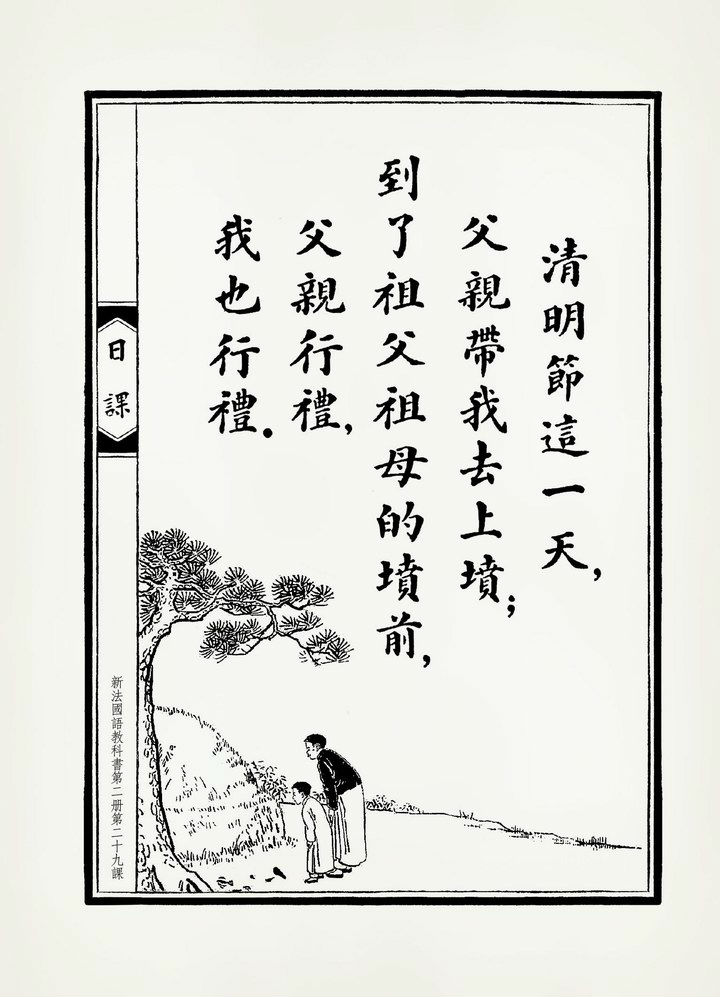 清明節這一天，
父親帶我去上墳；
到了祖父祖母的墳前，
父親行禮，
我也行禮．
日課
新法國語教科書第二册第二十九課